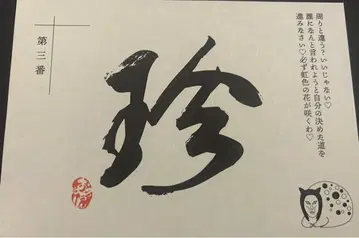 周りと違う?いいじゃない♡
誰になんと言われようと自分の決めた道を
進みなさい♡必ず虹色の花が咲くわ♡
珍
第三番